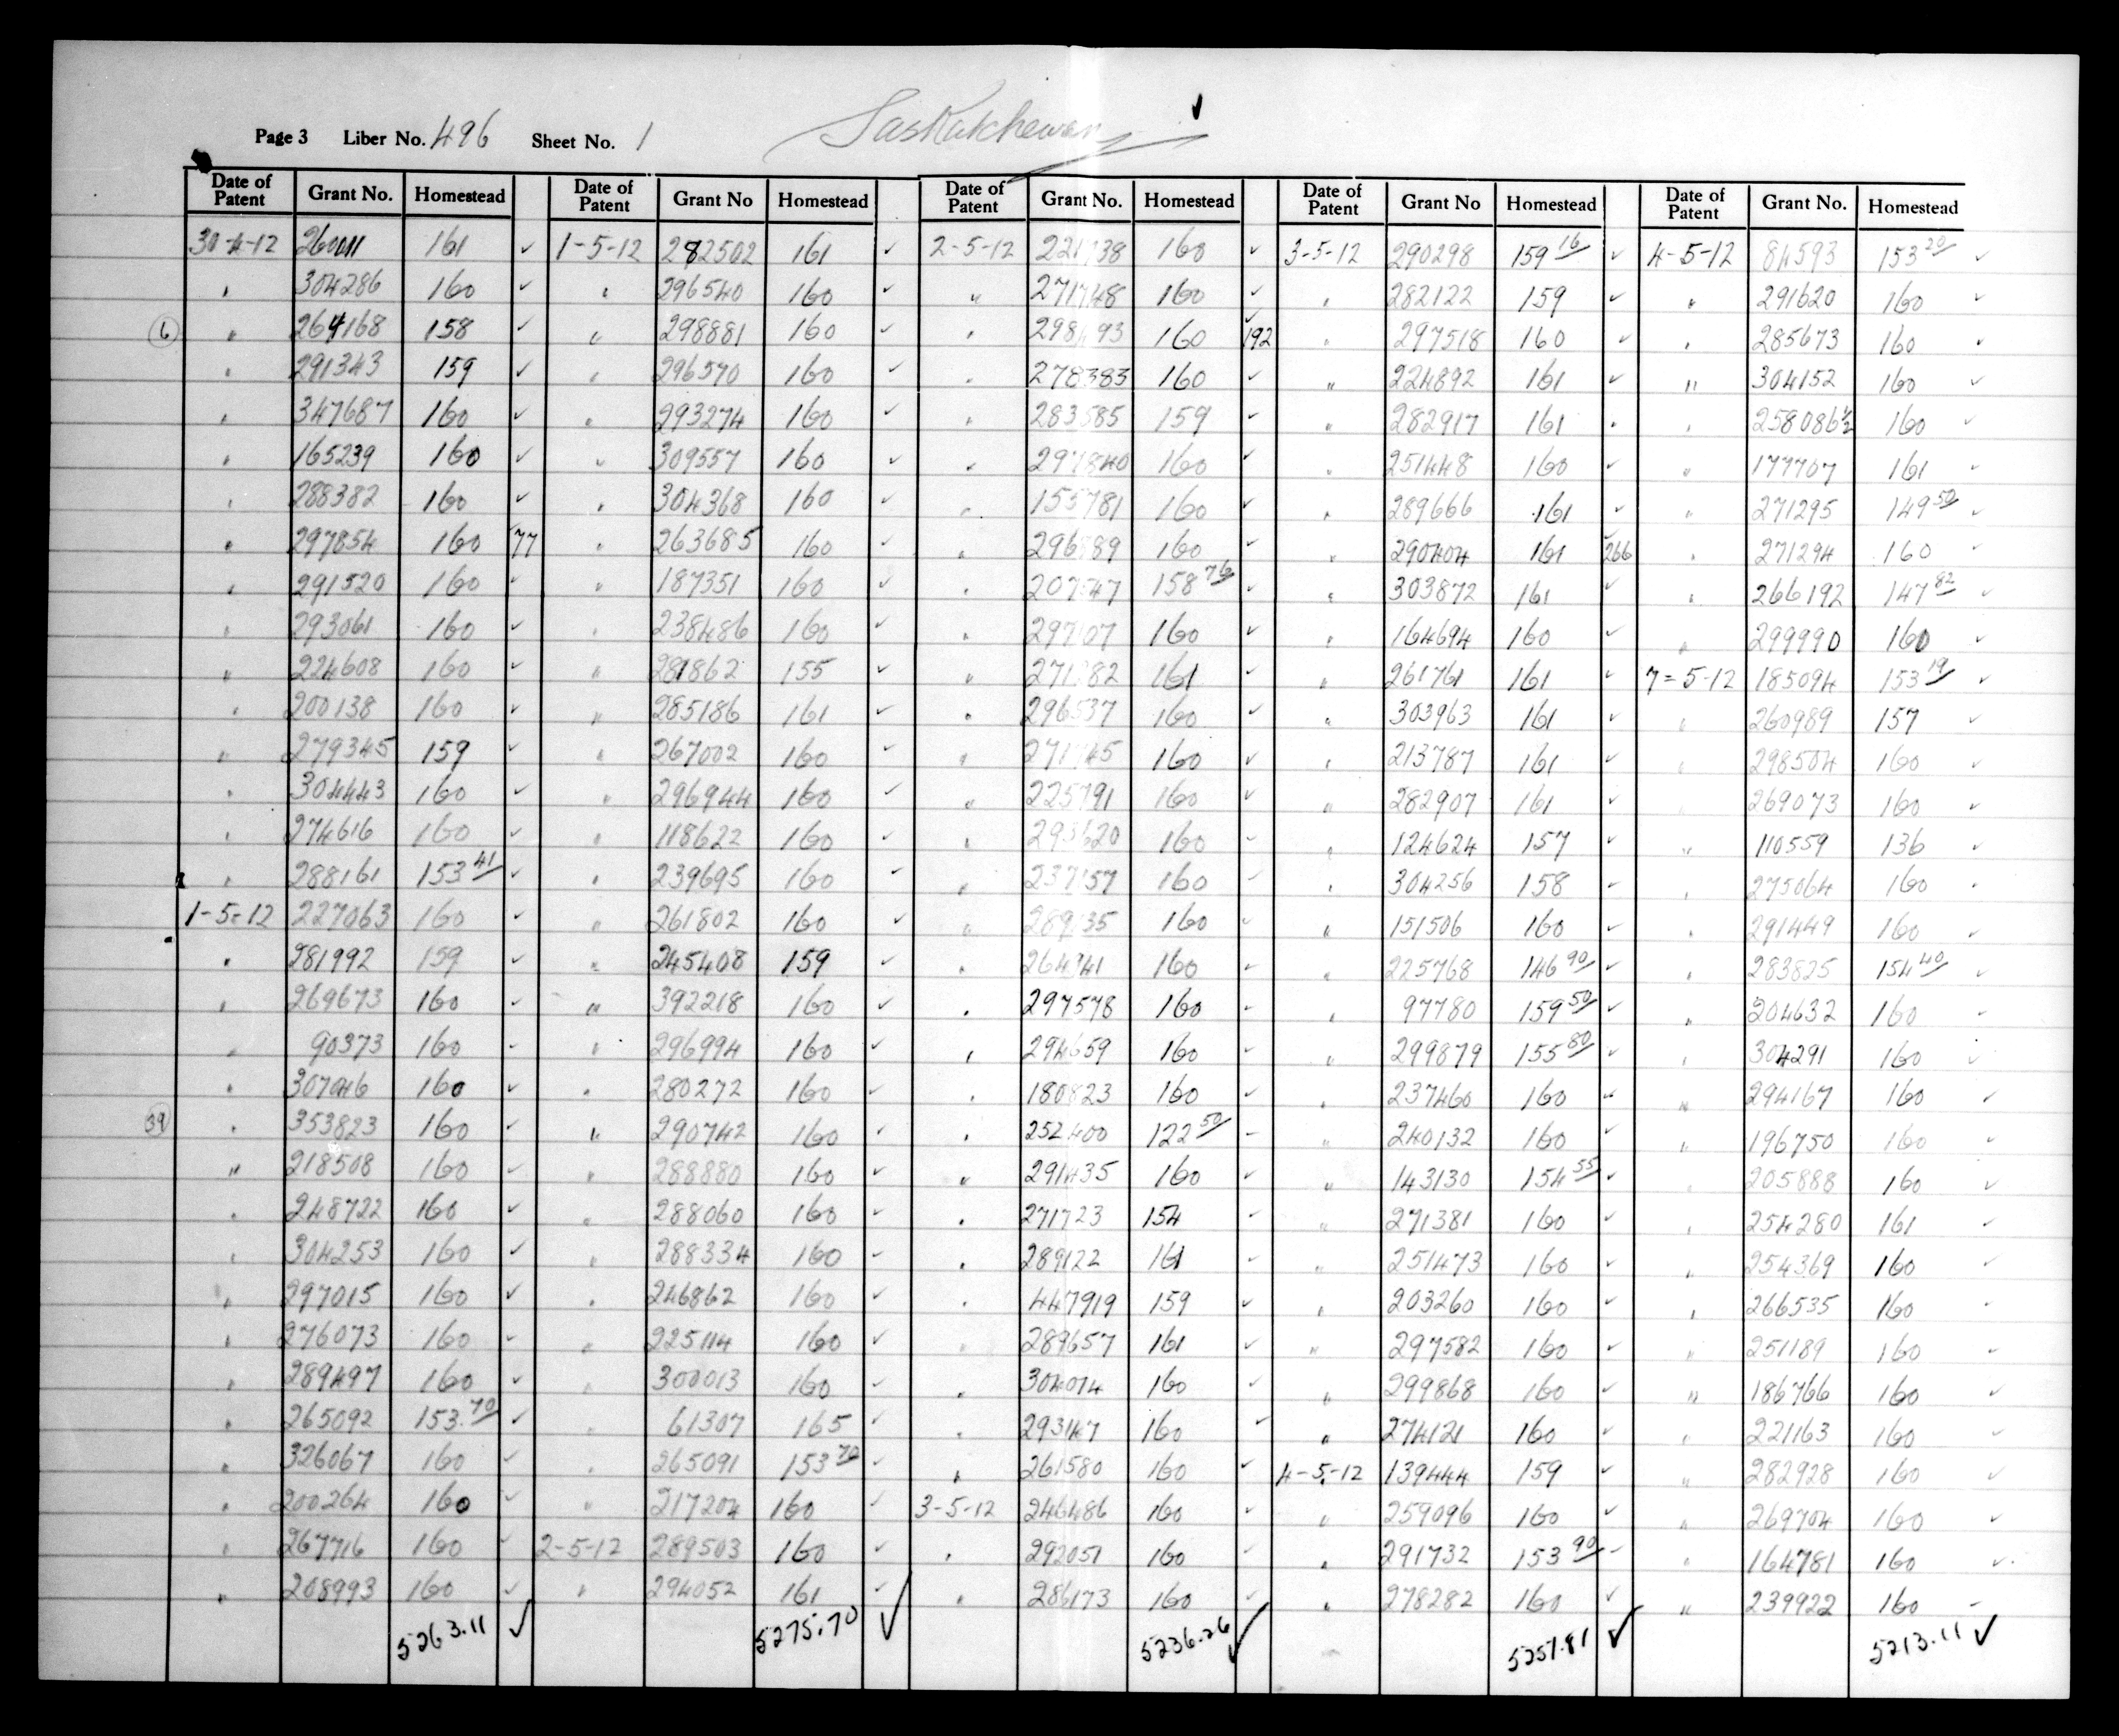 Page 3 Liber No. 496 Sheet No. 1 Saskatchewan
Date of Patent Grant No. Homestead Date of Patent Grant No Homestead Date of Patent Grant No. Homestead Date of Patent Grant No Homestead Date of Patent Grant No. Homestead
30-4-12 260011 161 ✓ 1-5-12 282502 161 ✓ 2-5-12 160 ✓ 3-5-12 290298 159 16/ ✓ 4-5-12 84593 153 20/ ✓
" 304286 160 ✓ " 296540 160 ✓ " 271748 160 ✓ " 282122 159 ✓ " 291620 160 ✓
6 " 264168 158 ✓ " 298881 160 ✓ " 160 192 " 297518 160 ✓ " 285673 160 ✓
" 291343 159 ✓ " 296570 160 ✓ " 278383 160 ✓ " 224892 161 ✓ " 304152 160 ✓
" 347687 160 ✓ " 293274 160 ✓ " 283585 159 ✓ " 282917 161 " 258086½ 160 ✓
" 165239 160 ✓ " 309557 160 ✓ " 297840 160 ✓ " 251448 160 ✓ " 177707 161 ✓
" 288382 160 ✓ " 304368 160 ✓ " 155781 160 ✓ " 289666 161 ✓ " 271295 149 50/ ✓
" 297854 160 77 " 263685 160 ✓ " 160 ✓ " 290404 161 266 " 271294 160 ✓
" 291520 160 ✓ " 187351 160 ✓ " 158 76/ ✓ " 303872 161 ✓ " 266192 147 82/ ✓
" 293061 160 ✓ " 238486 160 ✓ " 160 ✓ " 164694 160 ✓ " 299990 160 ✓
" 224608 160 ✓ " 281862 155 ✓ " 161 ✓ " 261761 161 ✓ 7-5-12 185094 153 19/ ✓
" 200138 160 ✓ " 285186 161 ✓ " 296537 160 ✓ " 303963 161 ✓ " 260989 157 ✓
" 279345 159 ✓ " 267002 160 ✓ " 160 ✓ " 213787 161 ✓ " 298504 160 ✓
" 304443 160 ✓ " 296944 160 ✓ " 225791 160 ✓ " 282907 161 ✓ " 269073 160 ✓
" 274616 160 ✓ " 118622 160 ✓ " 160 ✓ " 124624 157 ✓ " 110559 136 ✓
" 288161 153 41/ ✓ " 239695 160 ✓ " 160 ✓ " 304256 158 ✓ " 275064 160 ✓
1-5-12 227063 160 ✓ " 261802 160 ✓ " 160 ✓ " 151506 160 ✓ " 291449 160 ✓
" 281992 159 ✓ " 245408 159 ✓ " 160 ✓ " 225768 146 90/ ✓ " 283825 154 40/ ✓
" 269673 160 ✓ " 392218 160 ✓ " 297578 160 ✓ " 97780 159 50/ ✓ " 204632 160 ✓
" 90373 160 ✓ " 296994 160 ✓ " 294659 160 ✓ " 299879 155 80/ ✓ " 304291 160 ✓
" 307046 160 ✓ " 280272 160 ✓ " 180823 160 ✓ " 237460 160 ✓ " 294167 160 ✓
39 " 353823 160 ✓ " 290742 160 ✓ " 252400 122 50/ ✓ " 240132 160 ✓ " 196750 160 ✓
" 218508 160 ✓ " 288880 160 ✓ " 291435 160 ✓ " 143130 154 55/ ✓ " 205888 160 ✓
" 248722 160 ✓ " 288060 160 ✓ " 271723 154 ✓ " 271381 160 ✓ " 254280 161 ✓
" 304253 160 ✓ " 288334 160 ✓ " 289122 161 ✓ " 251473 160 ✓ " 254369 160 ✓
" 297015 160 ✓ " 246862 160 ✓ " 447919 159 ✓ " 203260 160 ✓ " 266535 160 ✓
" 276073 160 ✓ " 225114 160 ✓ " 289657 161 ✓ " 297582 160 ✓ " 251189 160 ✓
" 289497 160 ✓ " 300013 160 ✓ " 304074 160 ✓ " 299868 160 ✓ " 186766 160 ✓
" 265092 153.70/ ✓ " 61307 165 ✓ " 293147 160 ✓ " 274121 160 ✓ " 221163 160 ✓
" 326067 160 ✓ " 265091 153 70/ ✓ " 261580 160 ✓ 4-5-12 139444 159 ✓ " 282928 160 ✓
" 200264 160 ✓ " 217204 160 ✓ 3-5-12 246486 160 ✓ " 259096 160 ✓ " 269704 160 ✓
" 267716 160 ✓ 2-5-12 289503 160 ✓ " 292051 160 ✓ " 291732 153 90/ ✓ " 164781 160 ✓
" 208993 160 ✓ " 294052 161 ✓ " 286173 160 ✓ " 278282 160 ✓ " 239922 160 ✓
5263.11 ✓ 5275.70 ✓ 5236.26 ✓ 5257.81 ✓ 5213.11 ✓